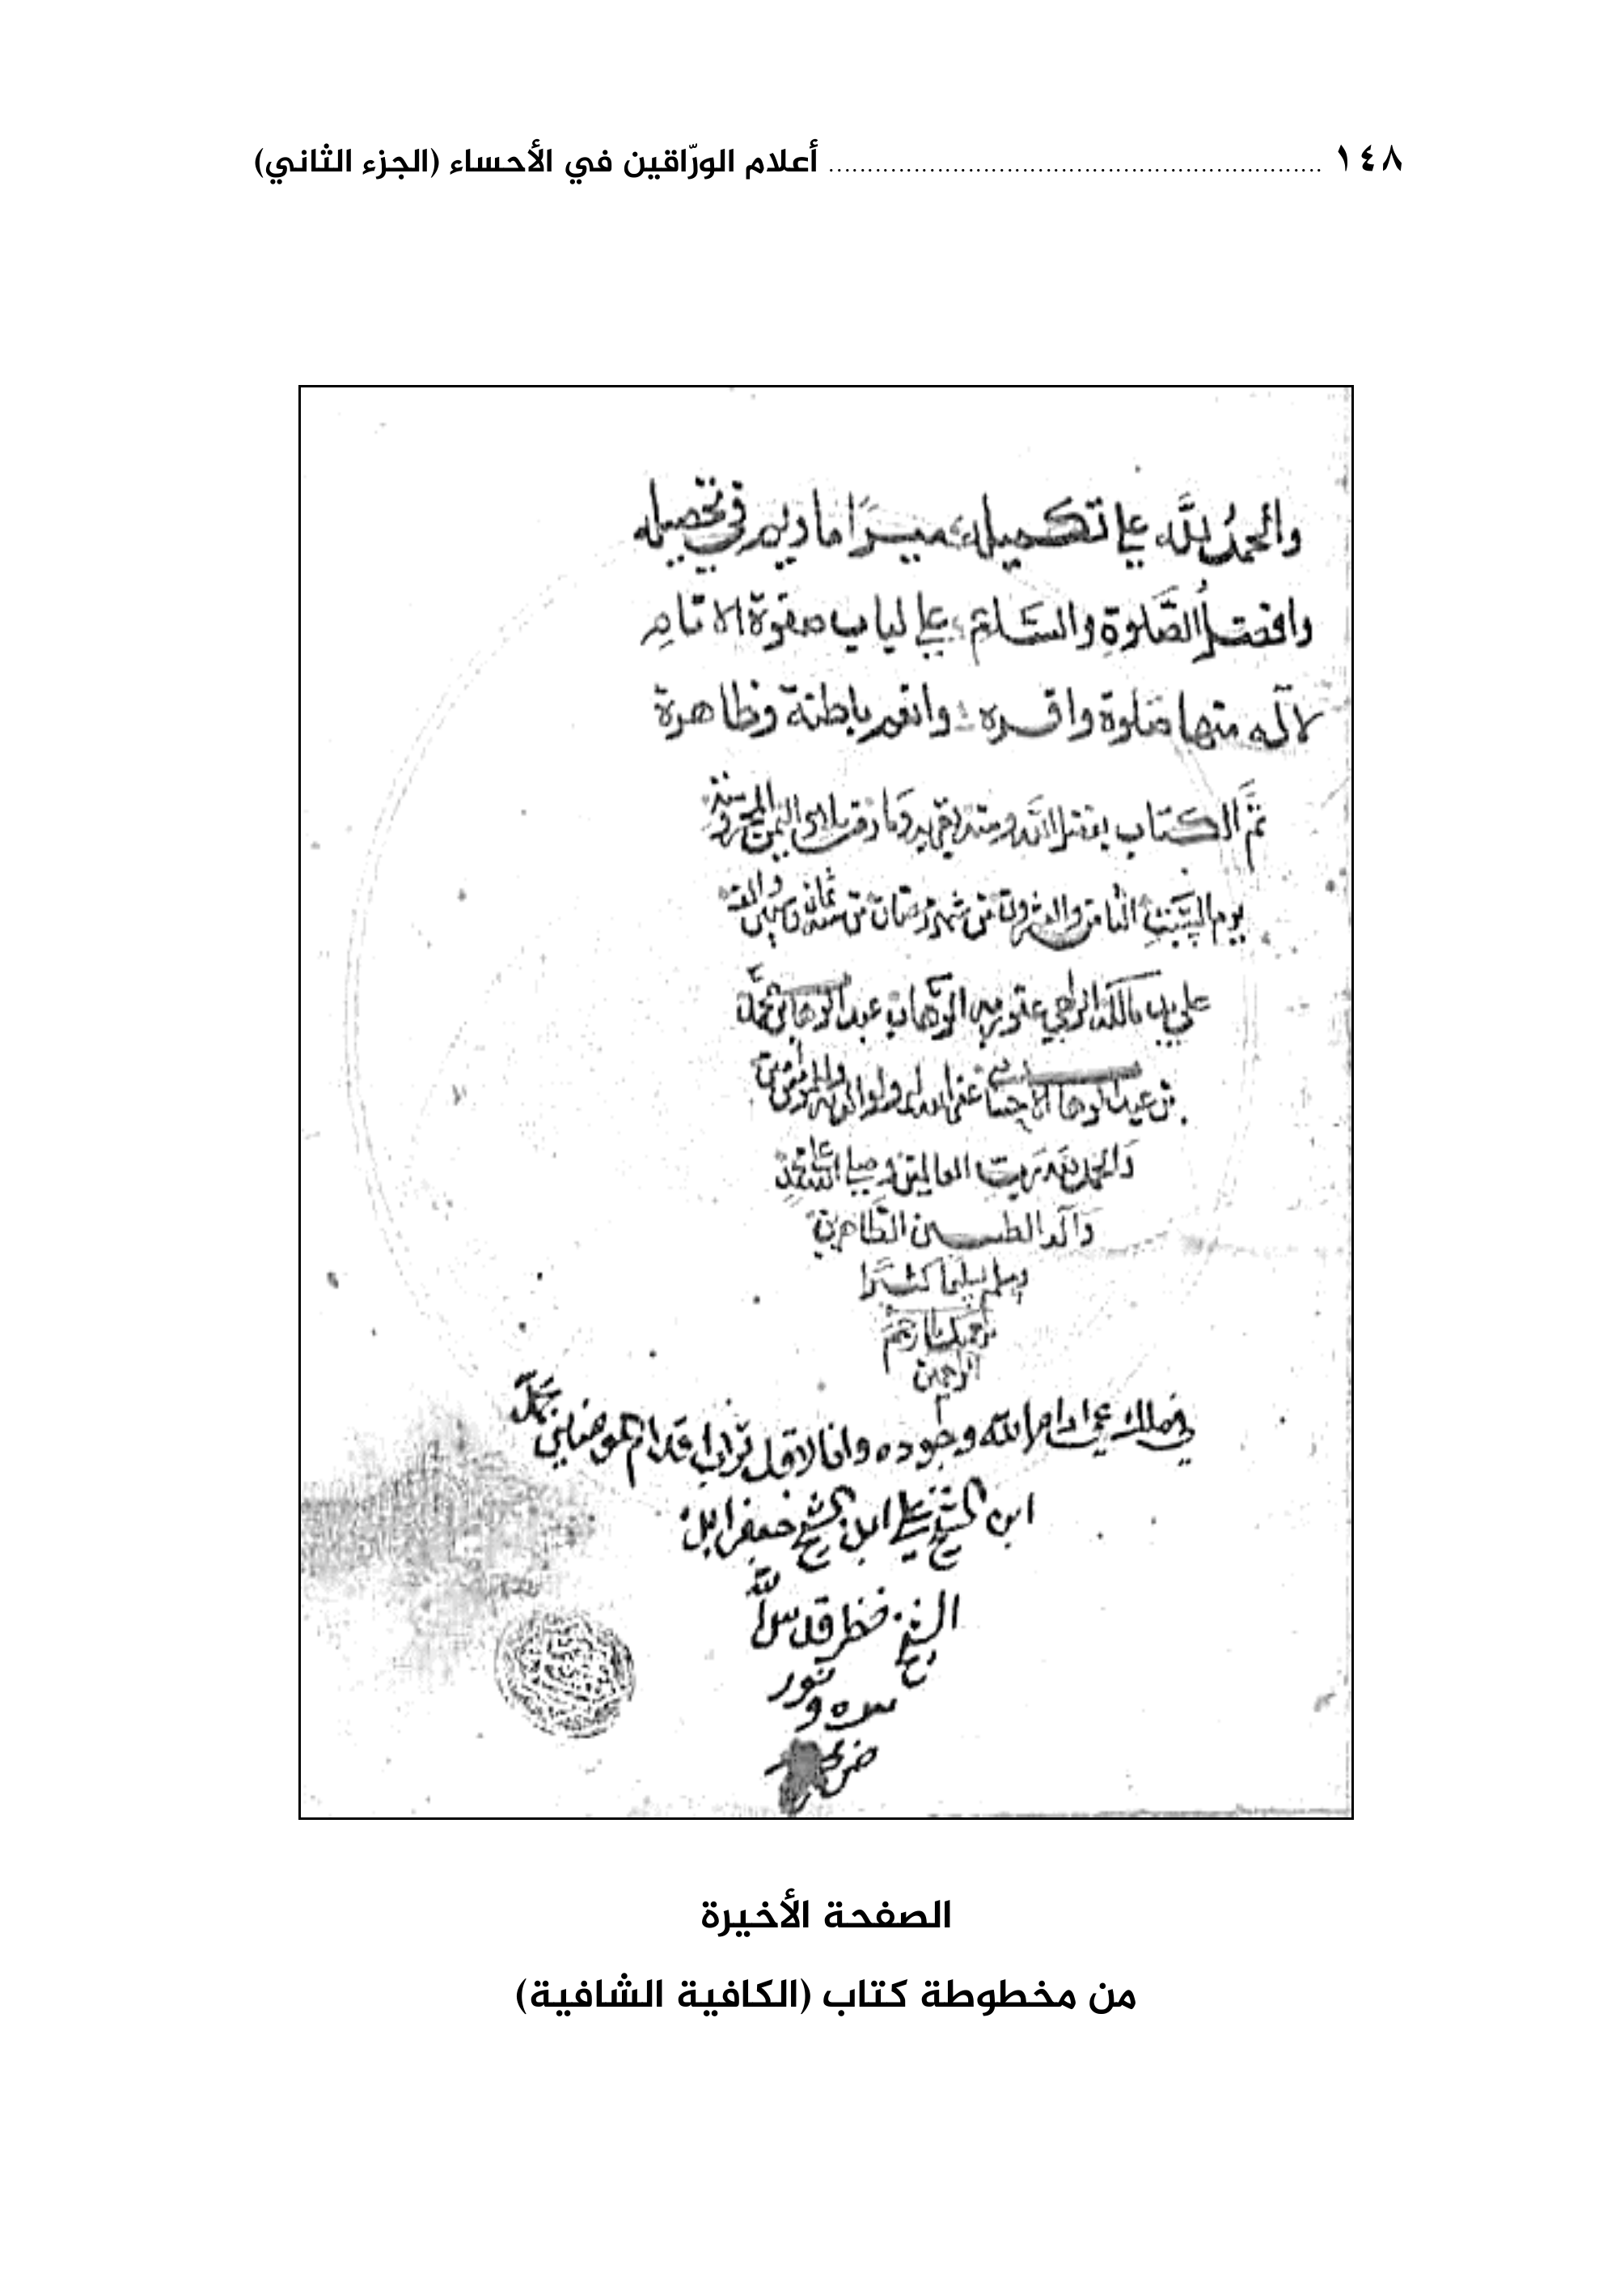 ١٤٨ ........ أعلام الورّاقين في الأحساء (الجزء الثاني)
والحمدُ للَّه على تكميله ميسرًا ما ديم في تحصيله
وافضلُ الصَّلوةِ والسَّلام على لباب صفوة الانام
لآله منها صلوة وافره وانعم باطنة وظاهرة
تمَّ الكتاب بفضل الله ومنه
يوم السَّبت الثامن والعشرون من شهر رمضان من سنة ثمان وسبعين والف
على يد مالكه الراجي عفو ربه الوهاب عبد الوهاب بن محمد
بن عبد الوهاب الاحسائي عفى الله له ولوالديه والمؤمنين
والحمد لله ربّ العالمين وصلى الله على محمد
وآله الطيبين الطَّاهرين
وسلم تسليما كثيرًا
برحمتك يا ارحم
الراحمين
في ملك عمي ادام الله وجوده وانا الاقل تراب اقدام المؤمنين محمد
ابن الشيخ علي ابن الشيخ جعفر ابن
الشيخ خضر قدس الله
سره ونور
ضريحه
الصفحة الأخيرة
من مخطوطة كتاب (الكافية الشافية)